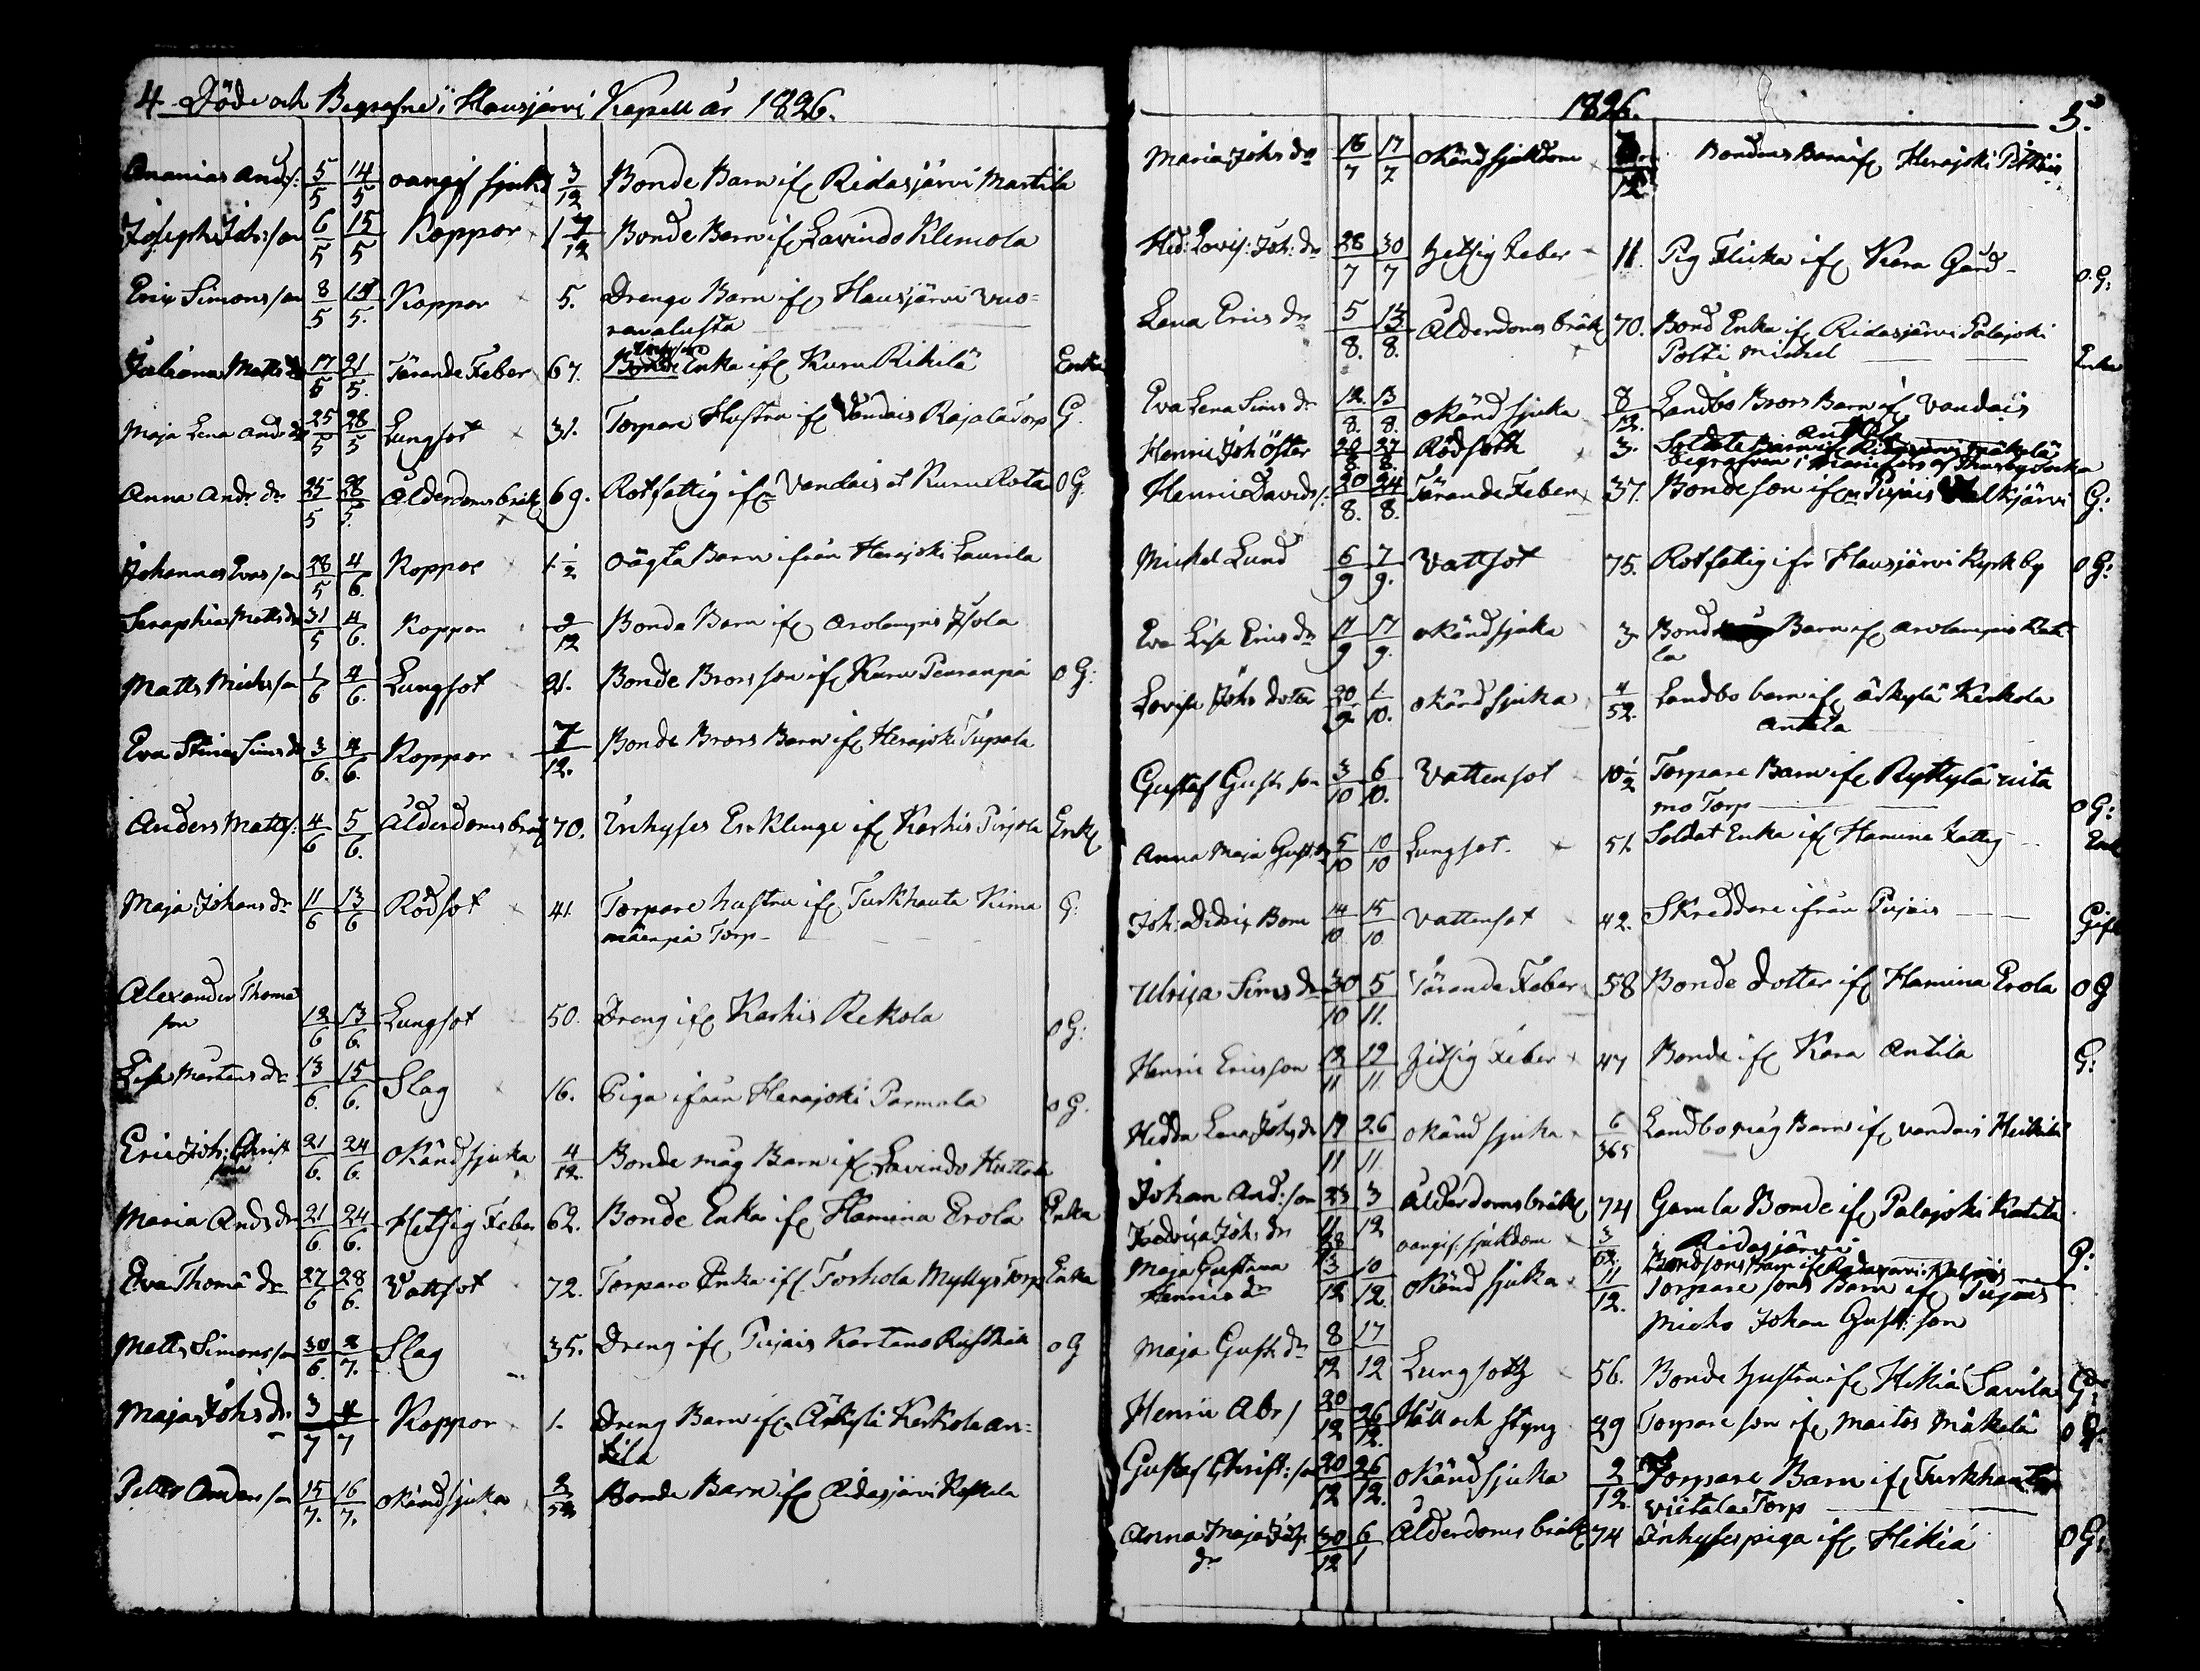 4 Döde och Begrafne i Hausjärvi Kapell år 1826.
Ananias And:s: 5/5 14/5 oangif sjukd 3/12 Bonde Barn ifr Ridasjärvi Martila
Joseph Joh:son 6/5 15/5 Koppor 1 7/12 Bonde Barn ifr Lavindo Klemola
Eric Simonsson 8/5 15/5. Koppor 5. Drenge Barn ifr Hausjärvi Vuo=
renalusta
Juliana Matts dr 17/5 21/5. Tärande Feber 67. Bonde Enka ifr Kuru Rikilä Enka
Maja Lena And: dr 25/5 28/5 Lungsot 31. Torpare Hustru ifr Vandais Rajala Torp G.
Anna And: dr 25/5 28/5. Ålderdoms bräk 69. Rotfattig ifr Vandais et Kuru Rota OG.
Johannes Evas son 28/5 4/6. Koppor 1 1/2 Oägta Barn ifrån Herajoki Laurila
Seraphia Matts dr 31/5 4/6. Koppor 9/12 Bonde Barn ifr Arolampis Isola
Matts Michs son 1/6 4/6. Lungsot 21. Bonde Brors son ifr Kuru Penranpä OG:
Eva Stina Sims dr 3/6. 4/6. Koppor 7/12. Bonde Brors Barn ifr Herajoki Tupala
Anders Matts s: 4/6 5/6. Ålderdoms bräk 70. Inhyses Enklinge ifr Karhis Pirjola Enkl
Maja Johans dr 11/6 13/6 Rödsot 41. Torpare hustru ifr Turkhauta Kima G:
mäenpä Torp
Alexander Thomæ
son 12/6 13/6. Lungsot 50. Dreng ifr Karhis Rekola OG:
Lisa Mårtens dr 13/6. 15/6. Slag 16. Piga ifrån Herajoki Parmala OG.
Eric Joh: Christ
son 21/6. 24/6. Okänd sjuka 4/12. Bonde måg Barn ifr Lavindo Huttola
Maria Ands dr 21/6. 24/6. Hetsig Feber 62. Bonde Enka ifr Hamina Erola Enka
Eva Thomæ dr 27/6 28/6. Vattsot 72. Torpare Enka ifr Torhola Myllys Torp Enka
Matts Simonsson 30/6. 2/7. Slag 35. Dreng ifr Pujais Kartano Rusthåll OG
Maja Johs dr 3/7 4/7 Koppor 1. Dreng Barn ifr Äskylä Kerkola An=
tila
Petter Anders son 15/7. 16/7. Okänd sjuka 2/52 Bonde Barn ifr Ridasjärvi
1826. 5.
Maria Johs dr 16/7 17/7 Okänd sjukdom /12 Bondens Barn ifr Herajoki
Hed: Lovis: Joh: dr 28/7 30/7 Hetsig Feber 11. Pig Flicka ifr Kara Gård OG:
Lena Erics dr 5/8. 13/8. Ålderdoms bräk 70. Bond Enka ifr Ridasjärvi Palajoki
Polsi Michel Enka
Eva Lena Sims dr 12/8. 13/8. Okänd sjuka 8/12. Landbo Brors Barn ifr Vandais
Anttila
Henric Joh Öster 20/8. 27/8. Rödsoth 3. Soldate Barn ifr Ridasjärvi Mäkelä
begrafven i
Henric Davids s: 20/8. 24/8. Tärande Feber 37. Bonde son ifr Pujais Valkjärvi G:
Michel Lund 6/9 7/9. Vattsot 75. Rotfattig ifr Hausjärvi Kyrkby OG:
Eva Lisa Erics dr 11/9 17/9. Okänd sjuka 3 Bond Barn ifr Arolampis
la
Lovisa Johs dotter 20/9. 1/10. Okänd sjuka 4/52. Landbo barn ifr Äskylä Kerkola
Antila
Gustaf Gust. son 3/10 6/10. Vattensot 10 1/2 Torpare Barn ifr Ryttylä
mo Torp OG:
Anna Maja Gust. dr 5/10 10/10 Lungsot. 51. Soldat Enka ifr Hamina Fattig Enk
Joh: Didric Bom 14/10 15/10 Vattensot 42. Skreddere ifrån Pujais Gift
Ulrica Sims dr 30/10 5/11. Tärande Feber 58 Bonde dotter ifr Hamina Erola OG
Henric Ericsson 12/11 19/11 Hetsig Feber 47 Bonde ifr Kara Antila G:
Hedda Lena Johs dr 19/11 26/11 Okänd sjuka 6/365 Landbo måg Barn ifr Vandais Heikilä
Johan And: son 23/11 3/12 Ålderdoms bräk 74 Gamla Bonde ifr Palajoki
Ridasjärvi G:
Fredrica Joh: dr oangif: sjukdom 3/52 Bondsons Barn ifr Ridasjärvi
Maja Gustava
Henrics dr 3/12 10/12. Okänd sjuka 11/12. Torpare sons Barn ifr Pujais
Michs Johan Gust: son
Maja Gust. dr 8/12 17/12 Lungsoth 56. Bonde hustru ifr Hikiä Savila G:
Henric Abr s 20/12 26/12. Håll och styng 29 Torpare son ifr Maitos Mäkelä OG:
Gustaf Christ: son 20/12 26/12. Okänd sjuka 2/12. Torpare Barn ifr Turkhauta
Viitala Torp
Anna Maja Joh.
dr 30/12 6/1 Ålderdoms bräk 74 Inhyses piga ifr Hikiä OG: